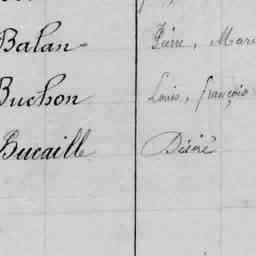 Balan Pierre, Mari
Buchon Louis, françois
Bucaille Désiré